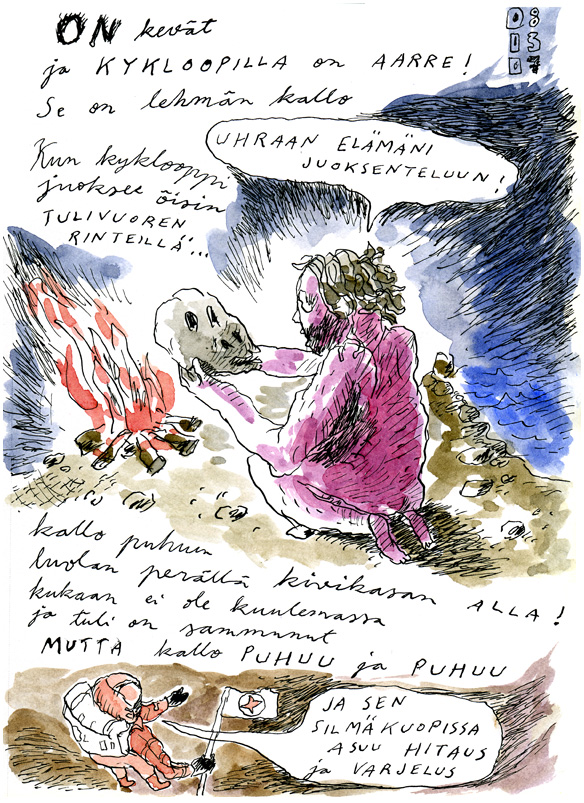 ON kevät
ja KYKLOOPILLA on AARRE!
Se on lehmän kallo
Kun kyklooppi
juoksee öisin
TULIVUOREN
RINTEILLÄ...
UHRAAN ELÄMÄNI
JUOKSENTELUUN!
08
03
07
kallo puhuu
luolan perällä kivikasan ALLA!
kukaan ei ole kuulemassa
ja tuli on sammunut
MUTTA kallo PUHUU ja PUHUU
JA SEN
SILMÄKUOPISSA
ASUU HITAUS
ja VARJELUS